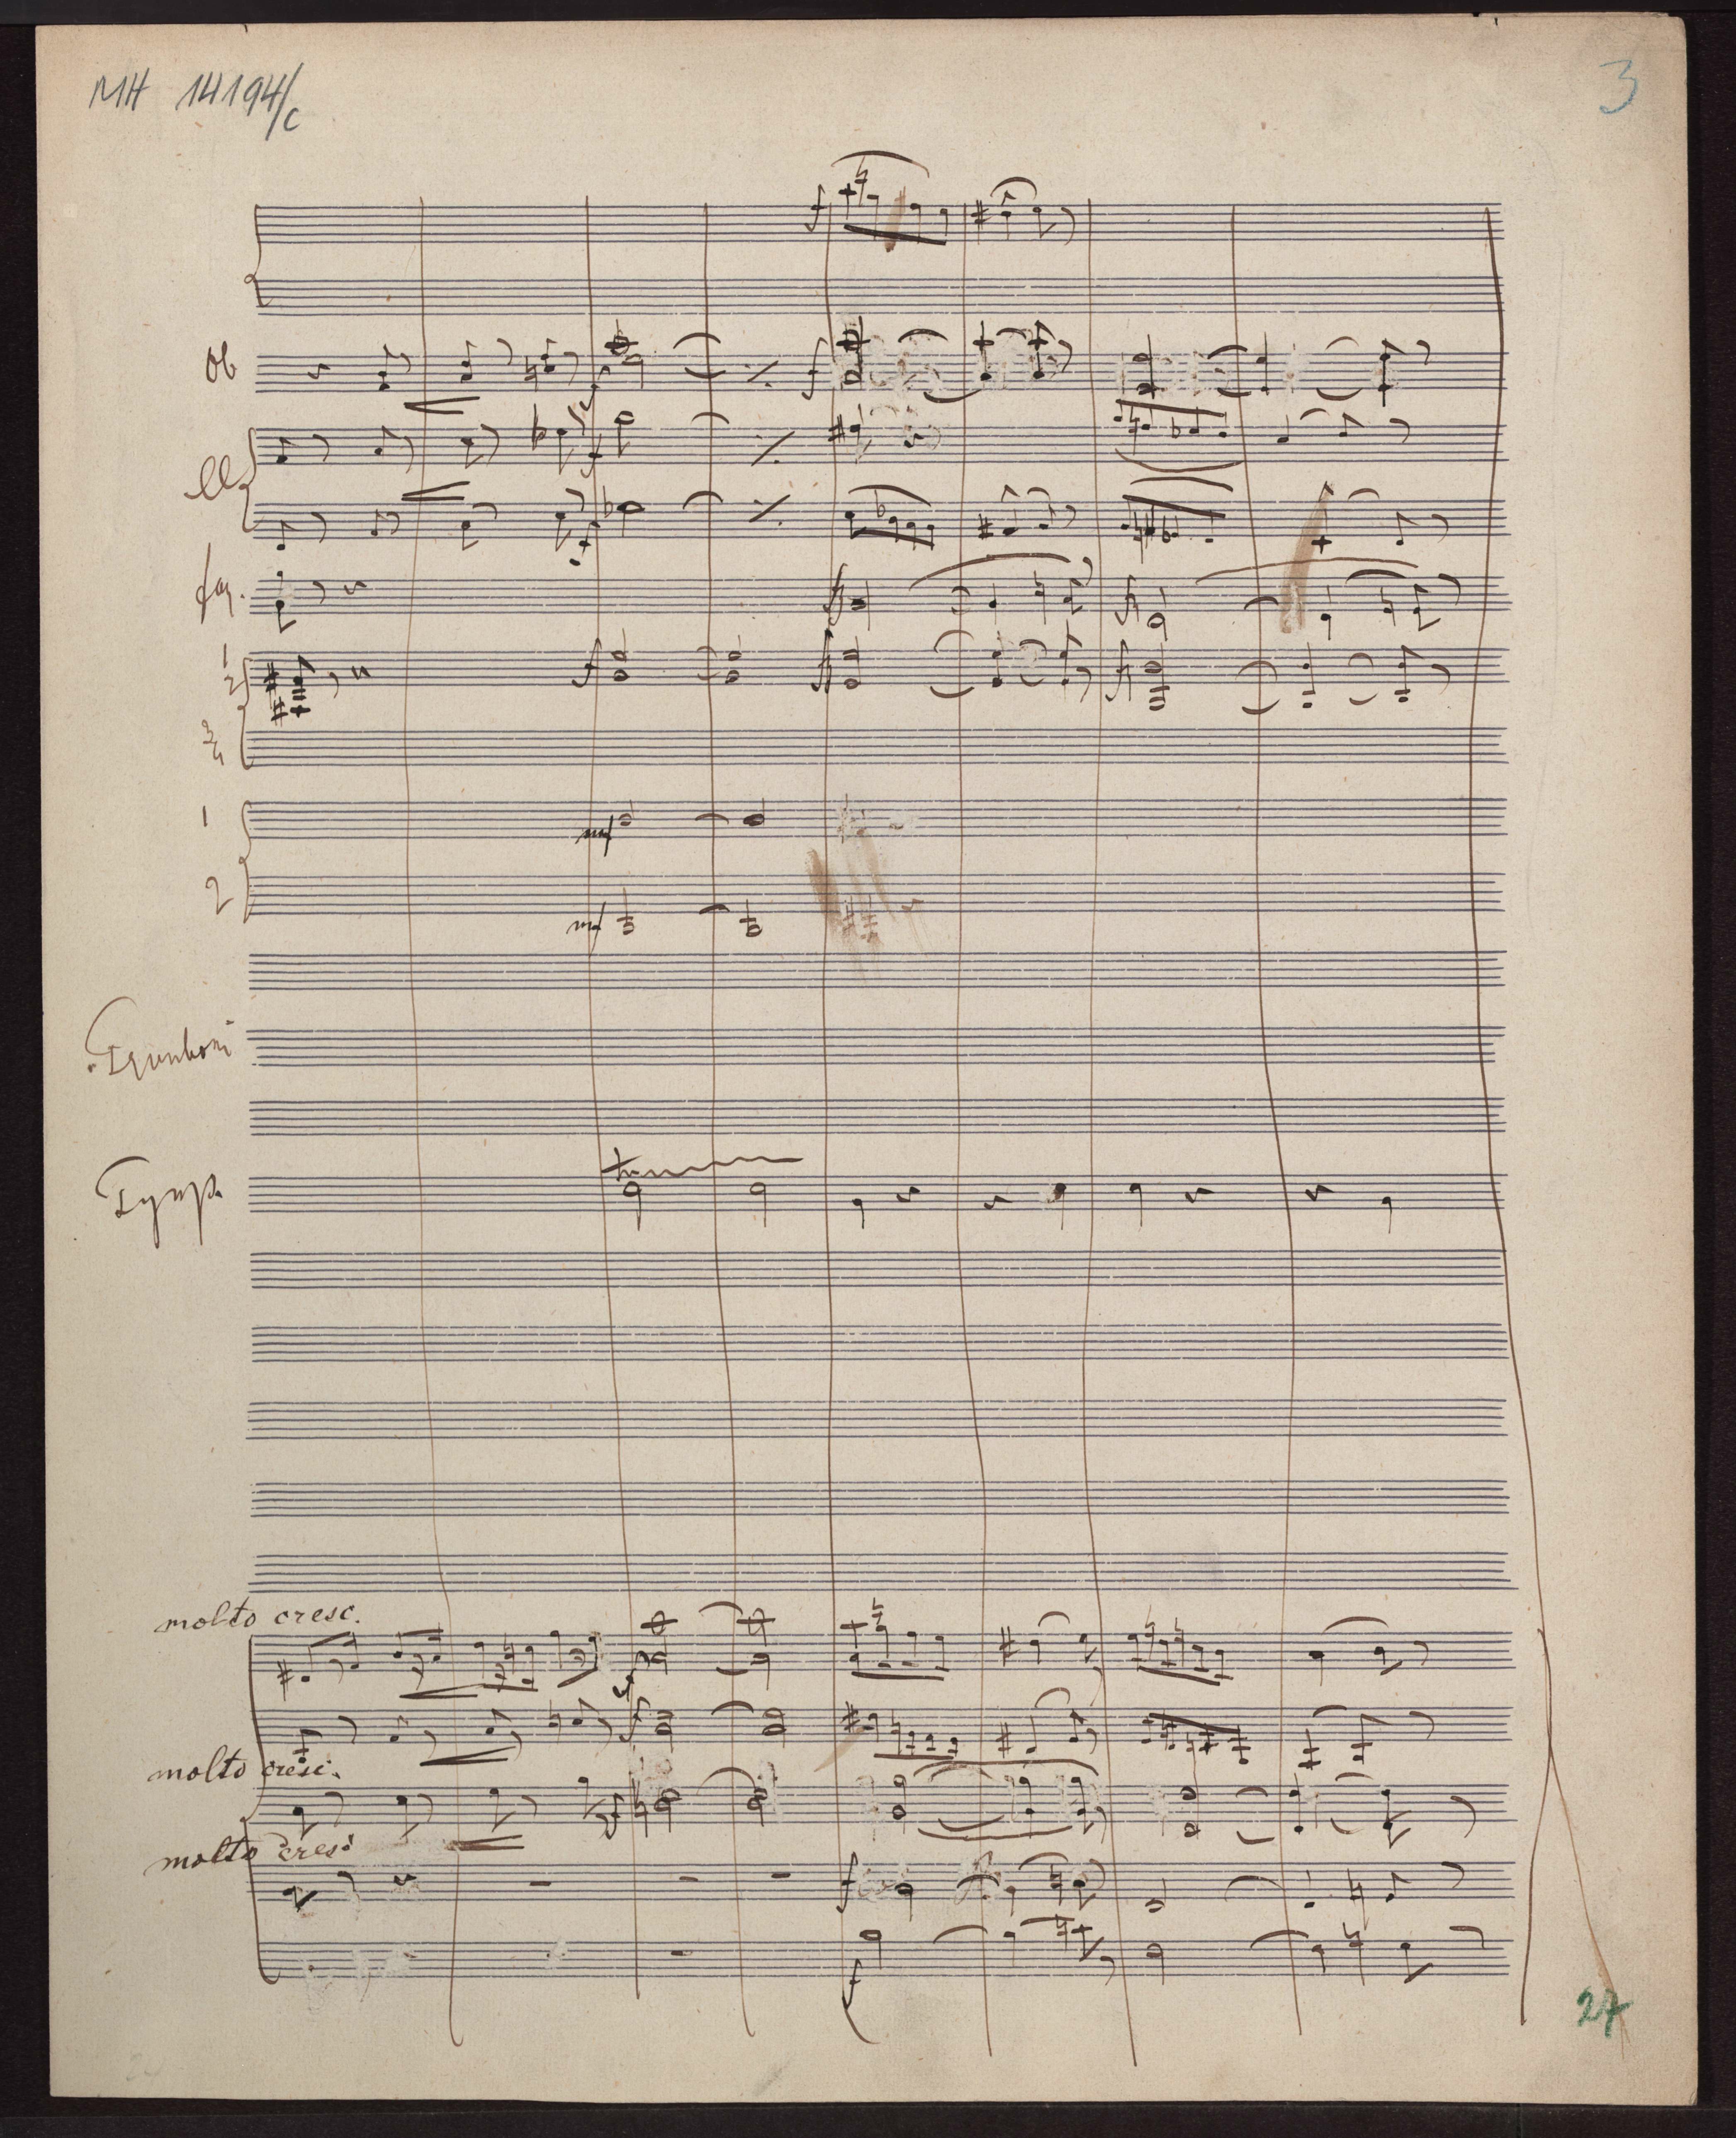 MH 14194/c
3
f
Ob
f
f
Cl
f
f
fag.
1
2
f
3
4
1
mf
2
mf
Tromboni
Tymp.
molto cresc.
f
f
molto cresc.
f
molto cresc
f
f
27